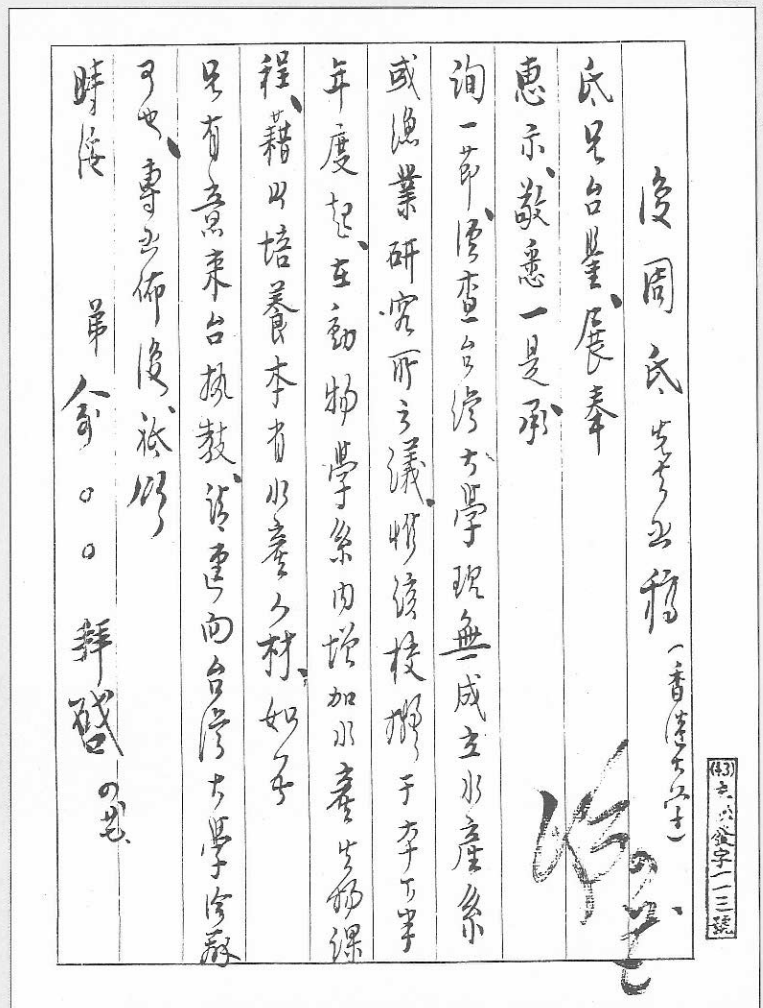 復周氏先生函稿(香港大學)
氏兄台鑒、展奉
惠示、敬悉一是、承
詢一節、經查台灣大學現無成立水產系
或漁業研究所之議、惟該校擬于本下半
年度起、在動物學系內增加水產生物課
程、藉以培養本省水產人材、如吾
兄有意來台執教、請逕向台灣大學洽辦
可也、專函佈復、祗頌
時綏
弟俞○○拜啓
(43) 發字一一三號